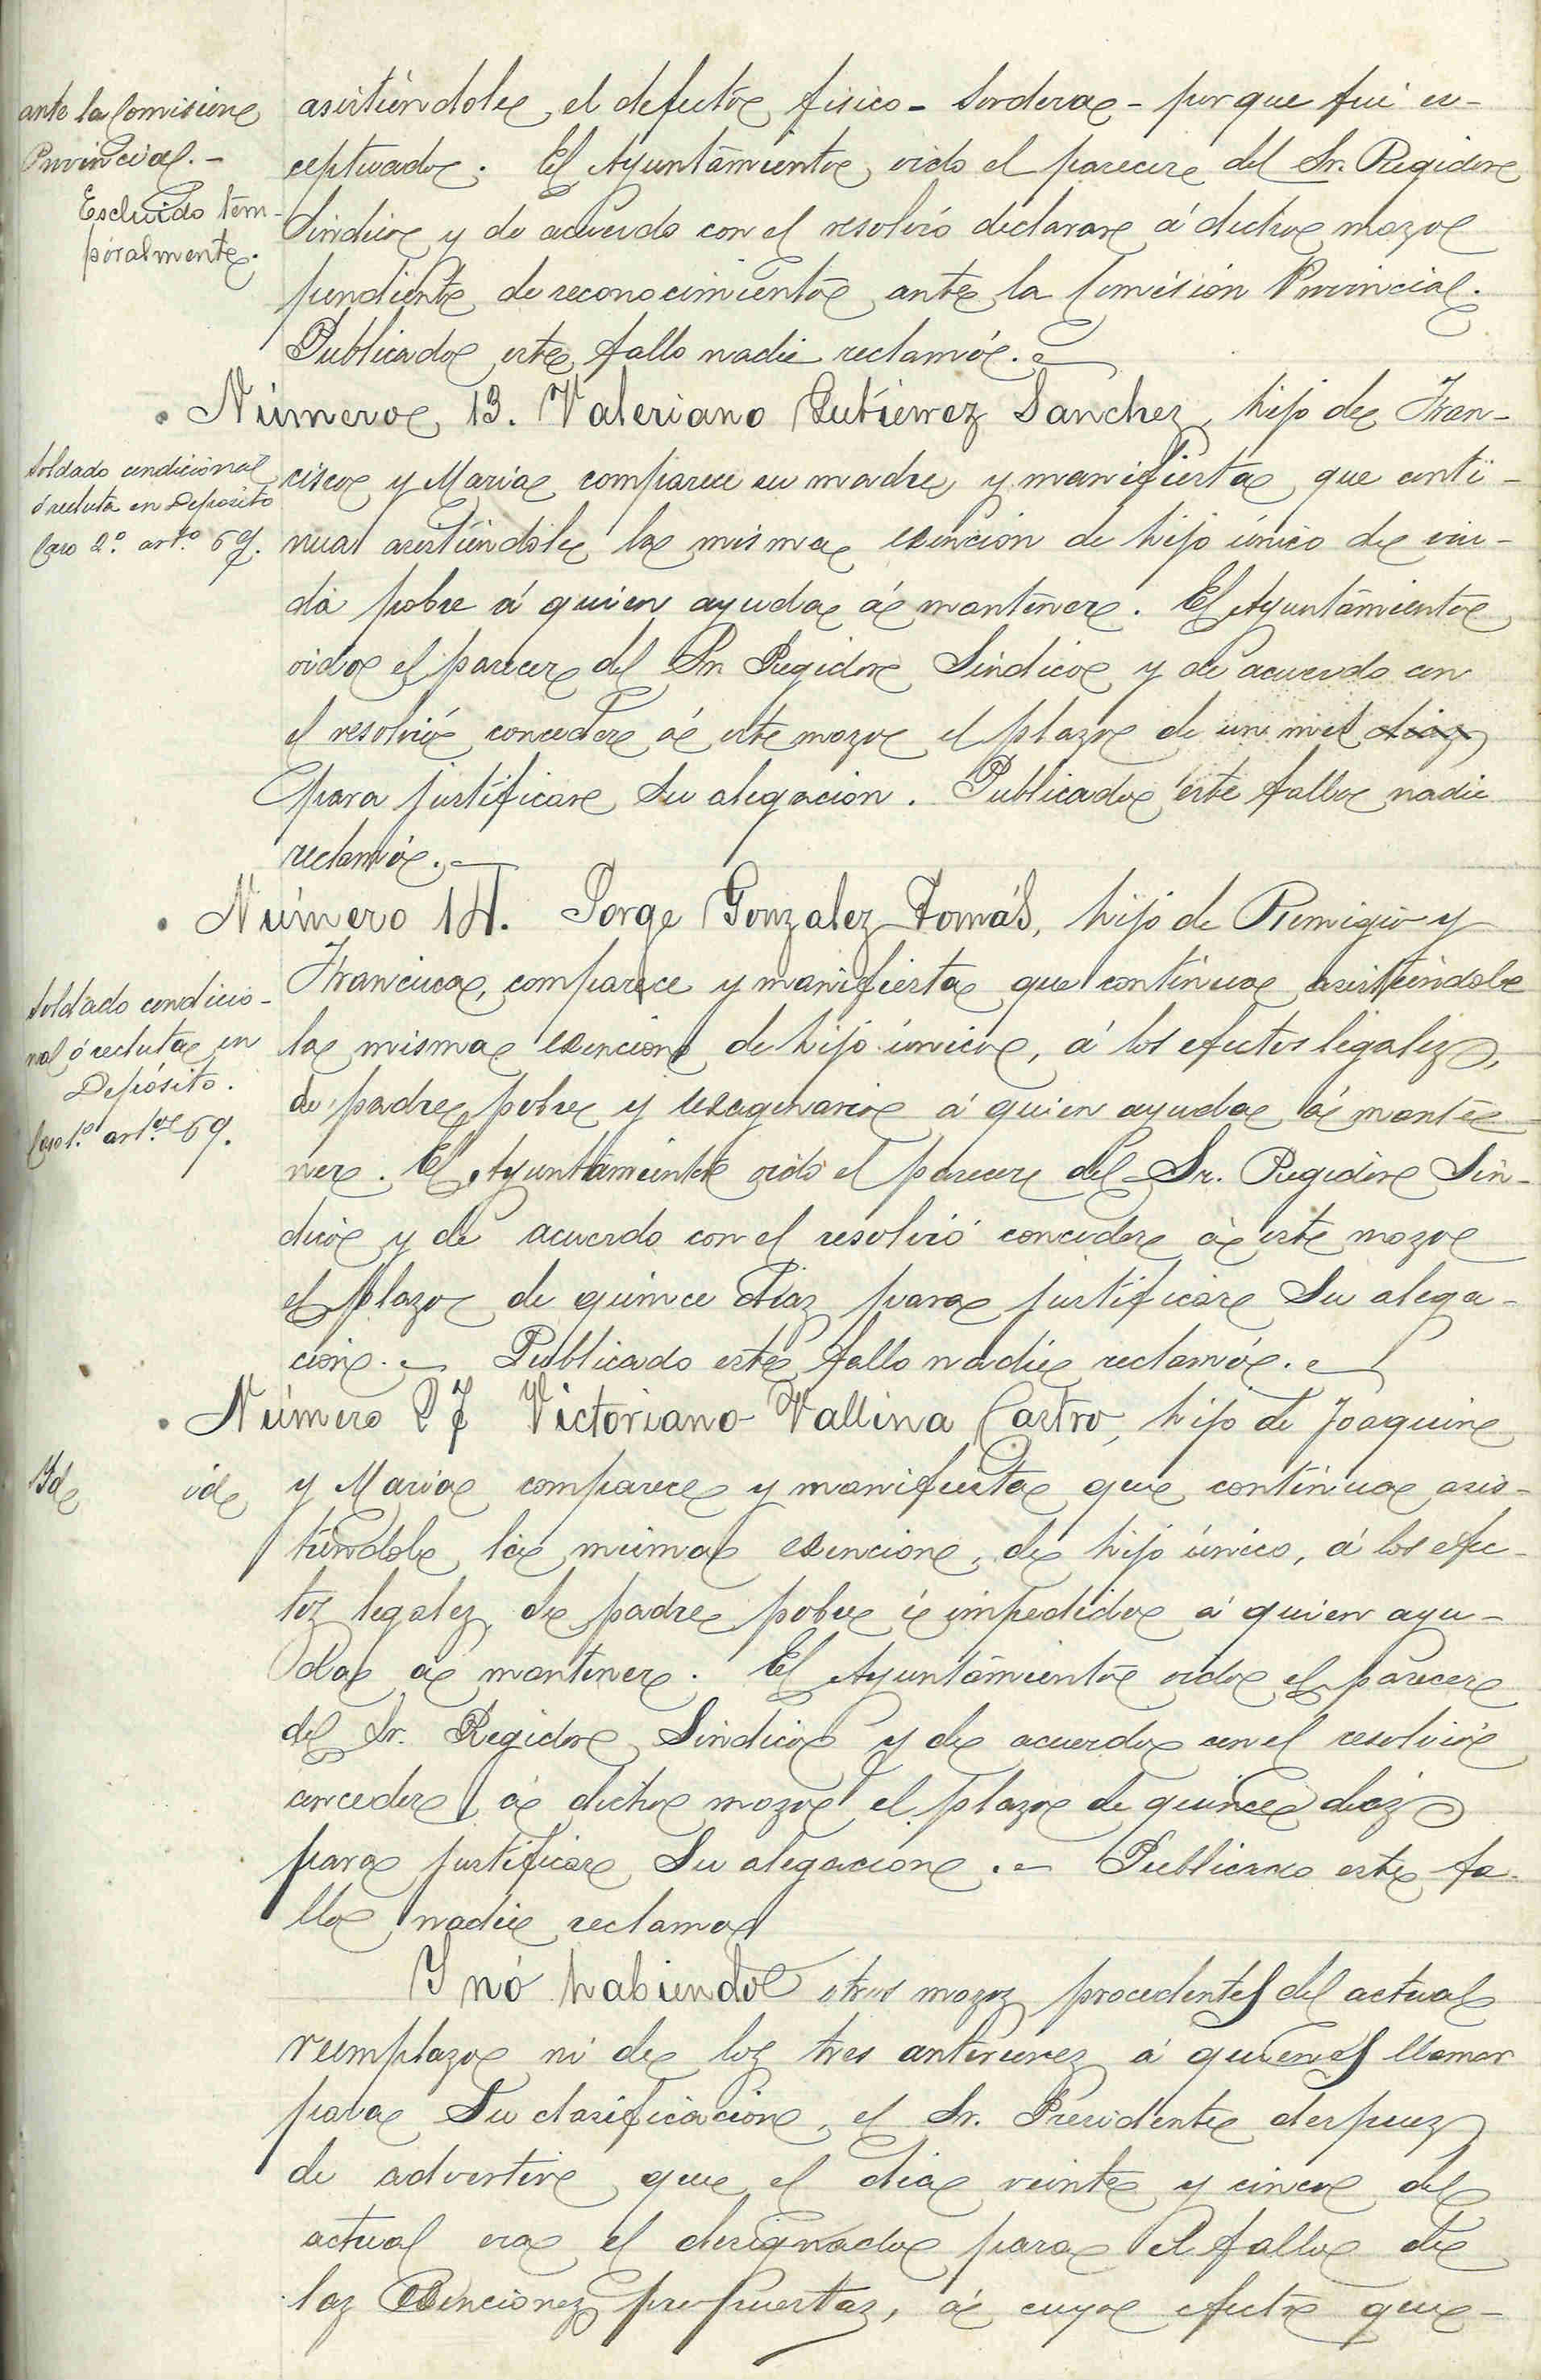 ante la Comision
Provincial. -
Escluido tem-
poralmente.
asistiéndole el defecto fisico - sordera - por que fué es-
ceptuado. El Ayuntamiento oido el parecer del Sr. Regidor
Sindico y de acuerdo con el resolvió declarar á dicho mozo
pendiente de reconocimiento ante la Comisión Provincial.
Publicado este fallo nadie reclamó.
Número 13. Valeriano Gutiérrez Sanchez, hijo de Fran-
soldado condicional
ó recluta en Deposito
Caso 2.º art.º 69.
cisco y Maria comparece su madre y manifiesta que conti-
nua asistiéndole la misma esencion de hijo único de viu-
da pobre á quien ayuda á mantener. El Ayuntamiento
oido el parecer del Sr Regidor Sindico y de acuerdo con
el resolvió conceder á este mozo el plazo de un mes diaz
para justificar su alegacion. Publicado este fallo nadie
reclamó.
Número 14. Jorge Gonzalez Tomás, hijo de Remigio y
soldado condicio-
nal ó recluta en
Depósito.
Caso 1.º art.º 69.
Francisca, comparece y manifiesta que continua asistiéndole
la misma esencion de hijo único, á los efectos legalez,
de padre pobre y secsagenario á quien ayuda á mante-
ner. El Ayuntamiento oido el parecer del Sr. Regidor Sin-
dico y de acuerdo con el resolvió conceder á este mozo
el plazo de quince diaz para justificar su alega-
cion. - Publicado este fallo nadie reclamó.
Número 27 Victoriano Vallina Castro, hijo de Joaquin
Id id
y Maria comparece y manifiesta que continua asis-
tiéndole la misma esencion, de hijo único, á los efec-
toz legalez, de padre pobre é impedido á quien ayu-
da á mantener. El Ayuntamiento oido el parecer
del Sr. Regidor Sindico y de acuerdo con el resolvió
conceder á dicho mozo el plazo de quince diaz
para justificar su alegacion. - Publicado este fa-
llo nadie reclamo
Y nó habiendo otros mozoz procedentes del actual
reemplazo ni de loz tres anteriorez á quienes llamar
para su clasificacion, el Sr. Presidente despuez
de advertir que el dia veinte y cinco del
actual era el designado para el fallo de
laz esencionez propuestaz, á cuyo efecto que-